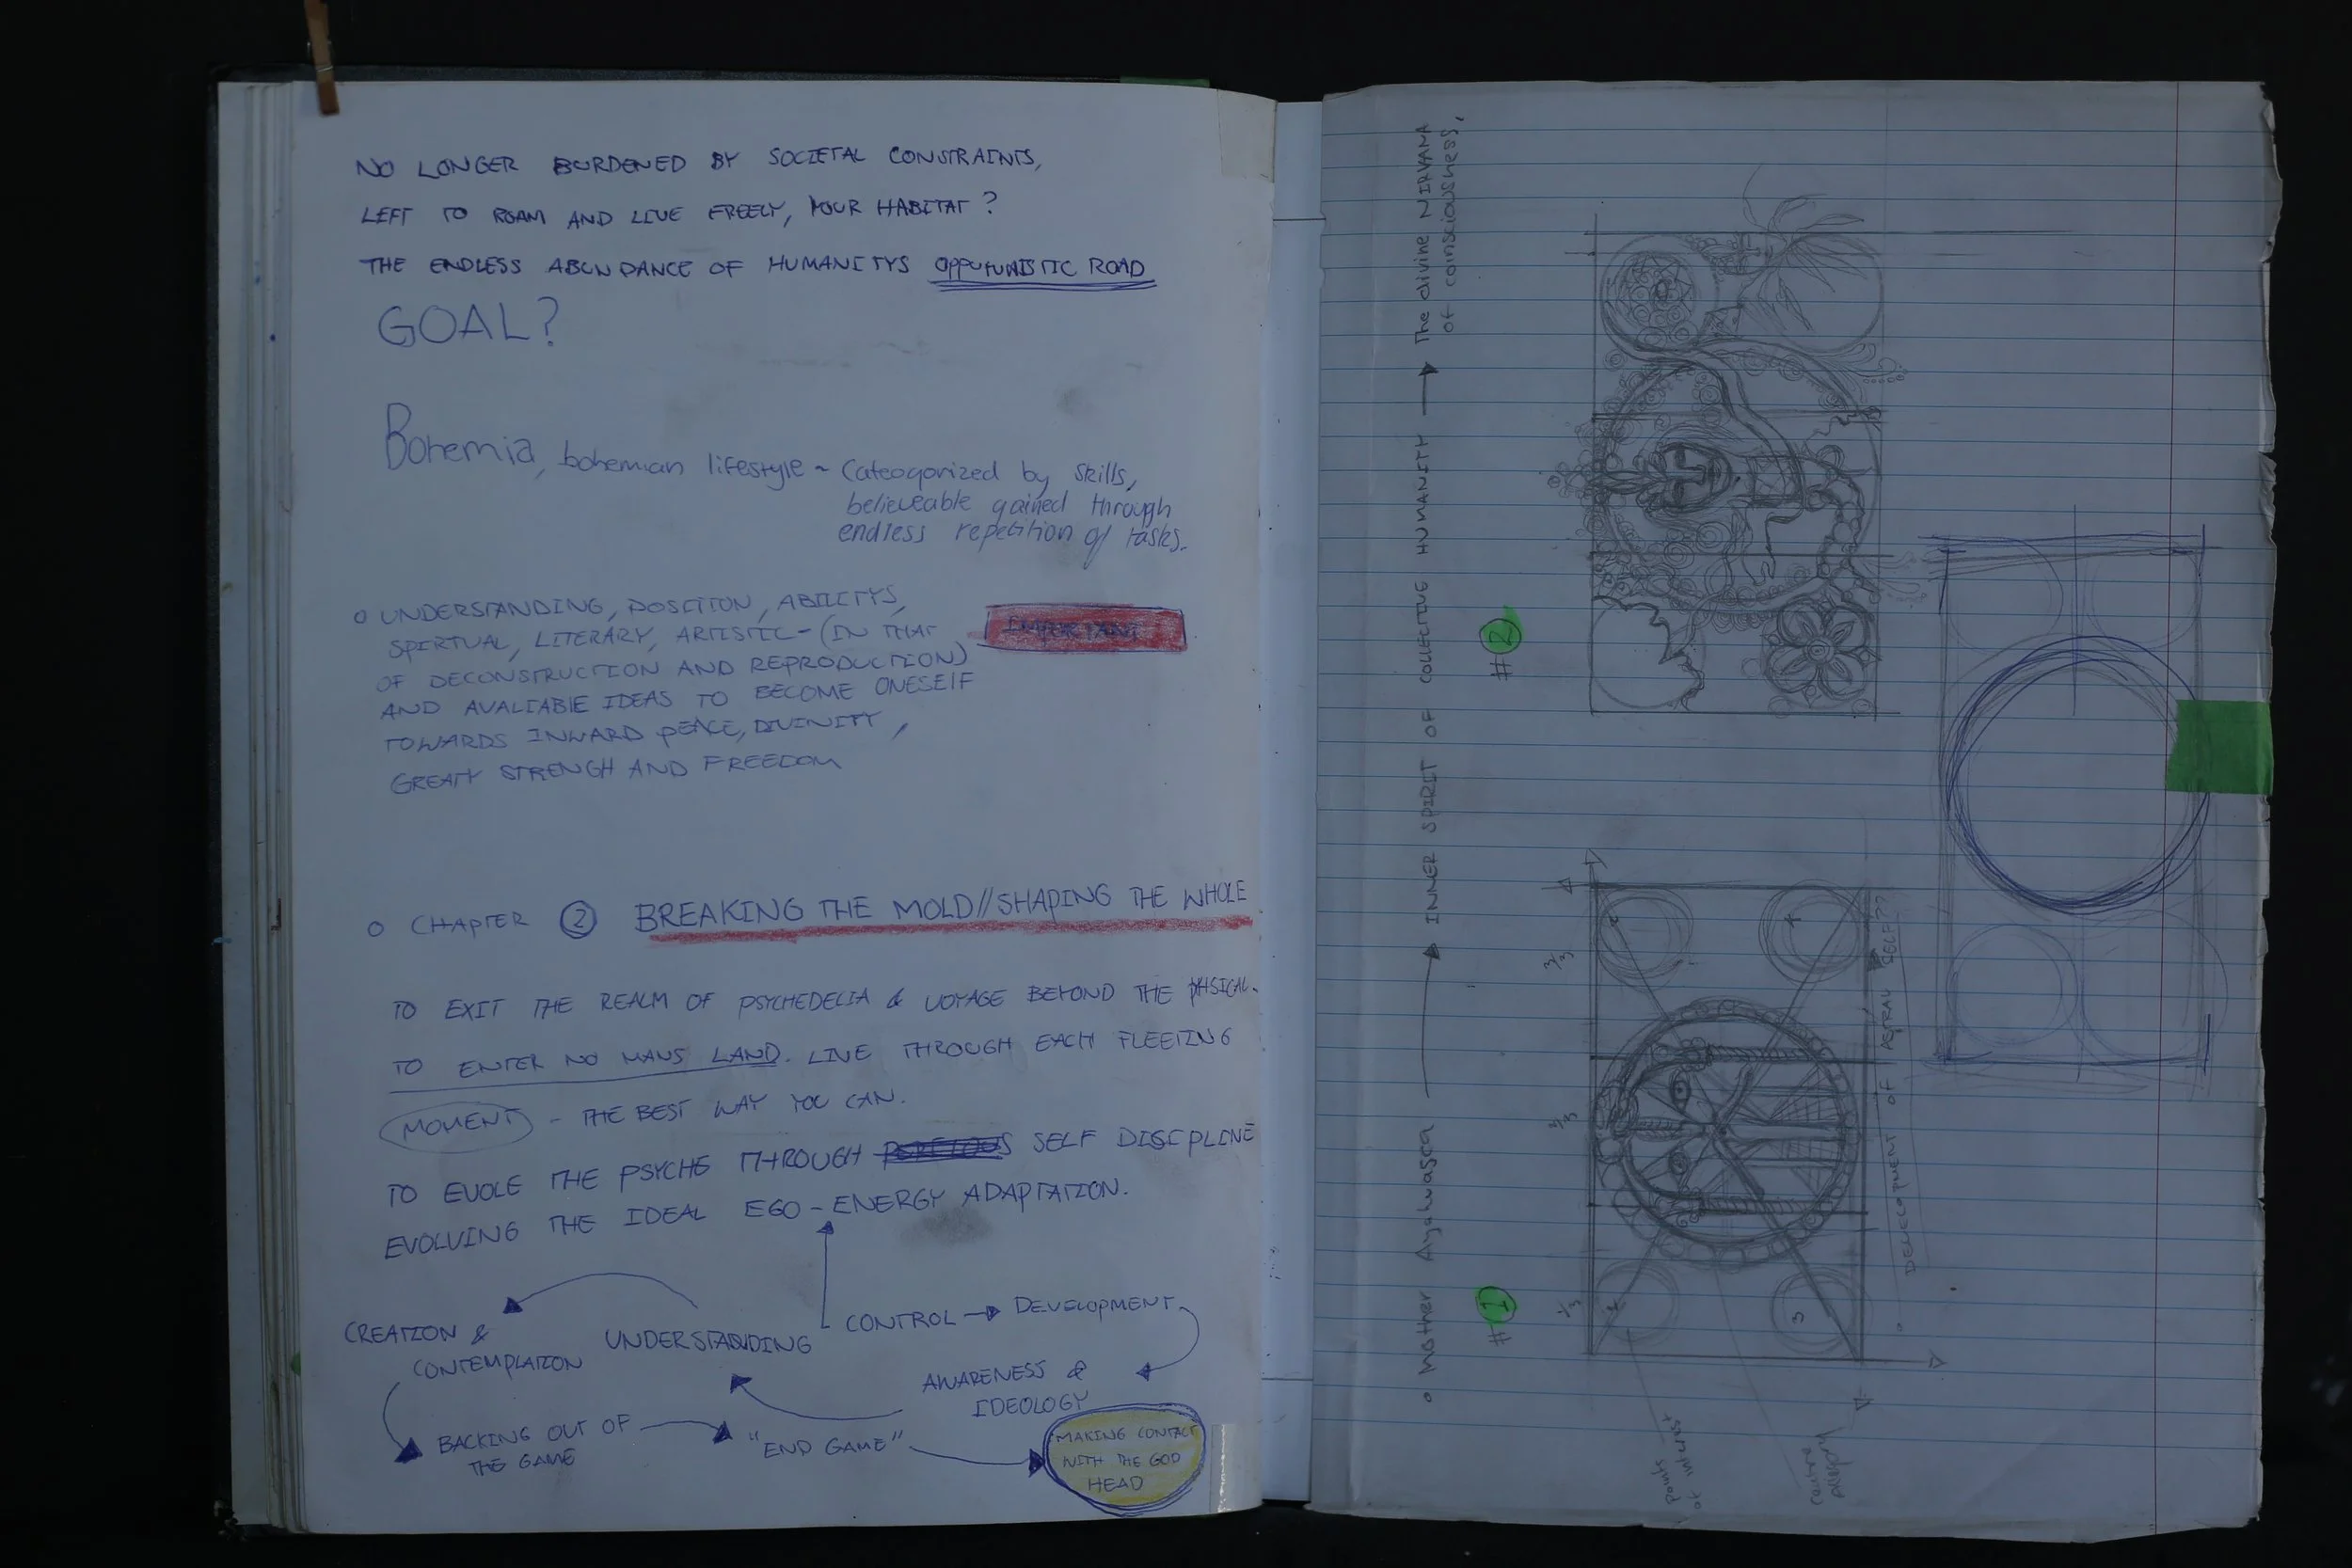 NO LONGER BURDENED BY SOCIETAL CONSTRAINTS,
LEFT TO ROAM AND LIVE FREELY, YOUR HABITAT?
THE ENDLESS ABUNDANCE OF HUMANITYS OPPUTUNISTIC ROAD
GOAL?
Bohemia, bohemian lifestyle ~ Cateogorized by skills,
believeable gained through
endless repetition of tasks.
O UNDERSTANDING, POSITION, ABILITYS,
SPIRTUAL, LITERARY, ARTISTIC - (IN THAT
IMPORTANT
OF DECONSTRUCTION AND REPRODUCTION)
AND AVALIABLE IDEAS TO BECOME ONESELF
TOWARDS INWARD PEACE, DIVINITY,
GREATY STRENGH AND FREEDOM
O CHAPTER 2 BREAKING THE MOLD//SHAPING THE WHOLE
TO EXIT THE REALM OF PSYCHEDELIA & VOYAGE BEYOND THE PHSICAL.
TO ENTER NO MANS LAND. LIVE THROUGH EACH FLEETING
MOMENT - THE BEST WAY YOU CAN.
TO EVOLE THE PSYCHE THROUGH SELF DISCIPLINE
EVOLVING THE IDEAL EGO - ENERGY ADAPTATION.
CONTROL → DEVELOPMENT
CREATION &
CONTEMPLATION
UNDERSTANDING
AWARENESS &
IDEOLOGY
BACKING OUT OF
THE GAME
"END GAME"
MAKING CONTACT
WITH THE GOD
HEAD
o Mother Ayahwasca → INNER SPIRIT OF COLLECTIVE HUMANITY → The divine NIRVANA
of coinsciousness,
#1
#2
2/3
1/3
3
DEVELOPMENT OF ASTRAL SELF??
Points
of interest